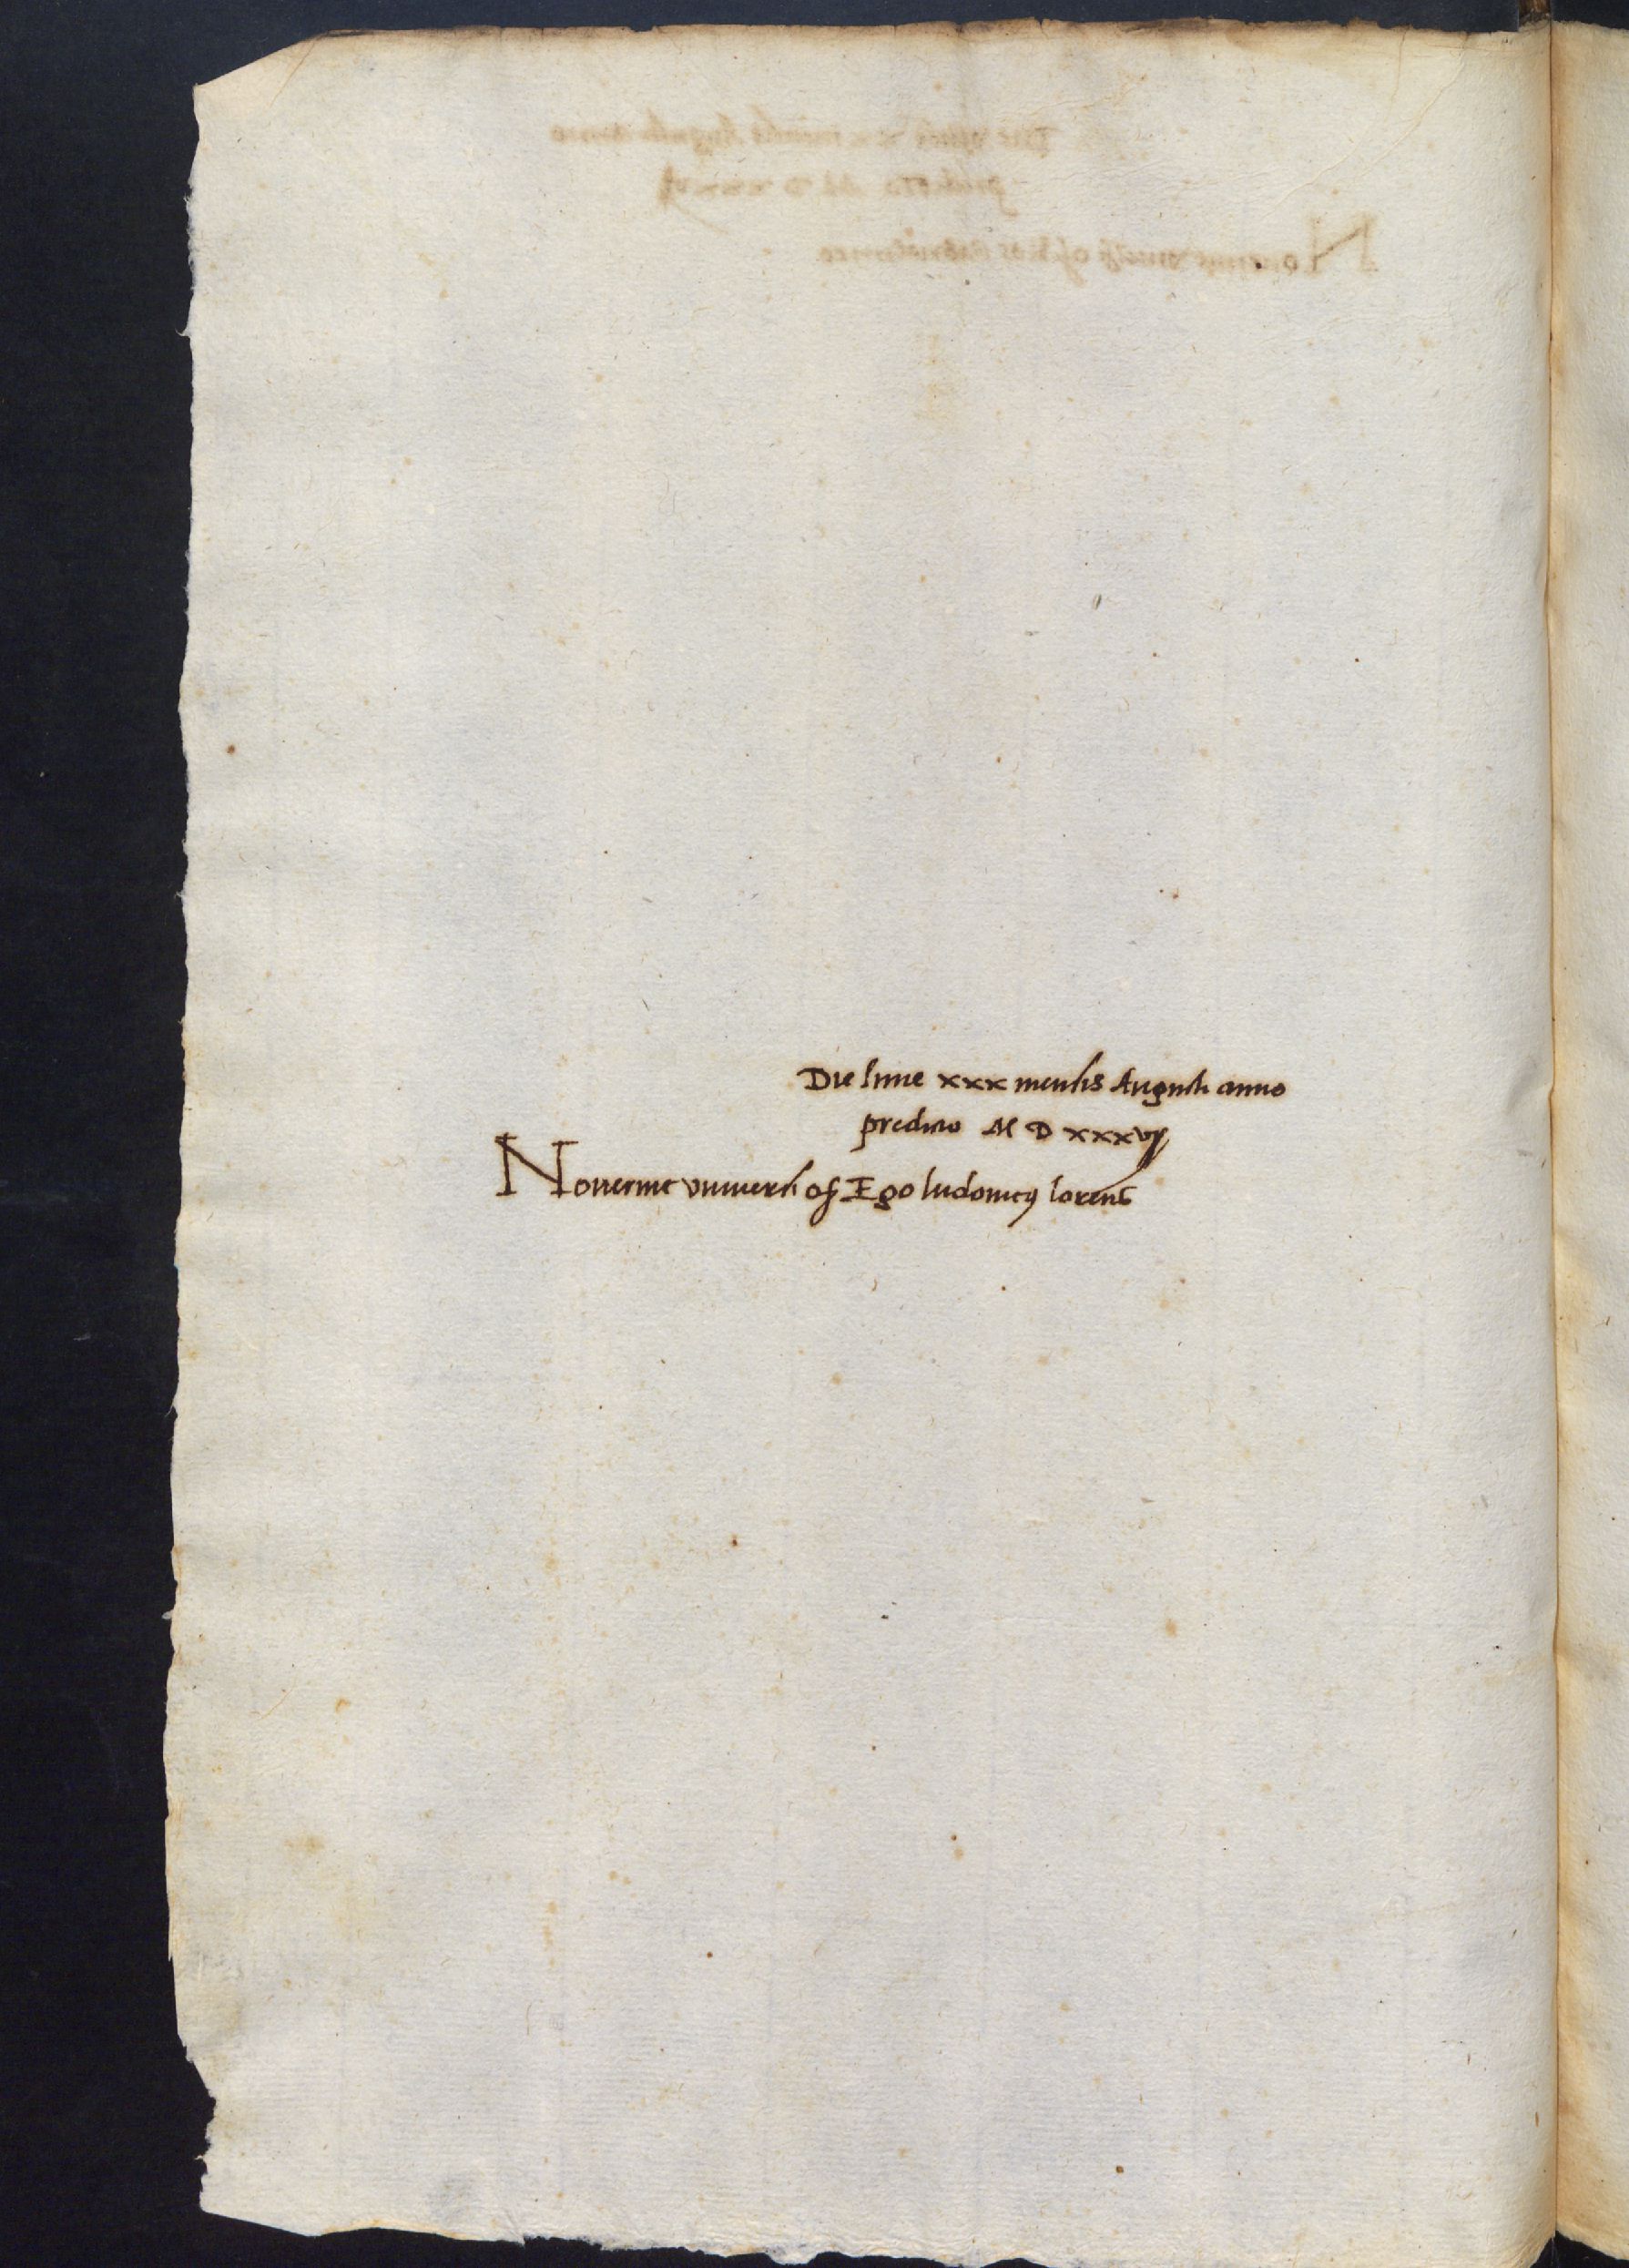 Die lune xxx mensis Augusti anno
predicto M D xxxv
Nouerint vniuersi ꝙ Ego ludouicꝰ lorens